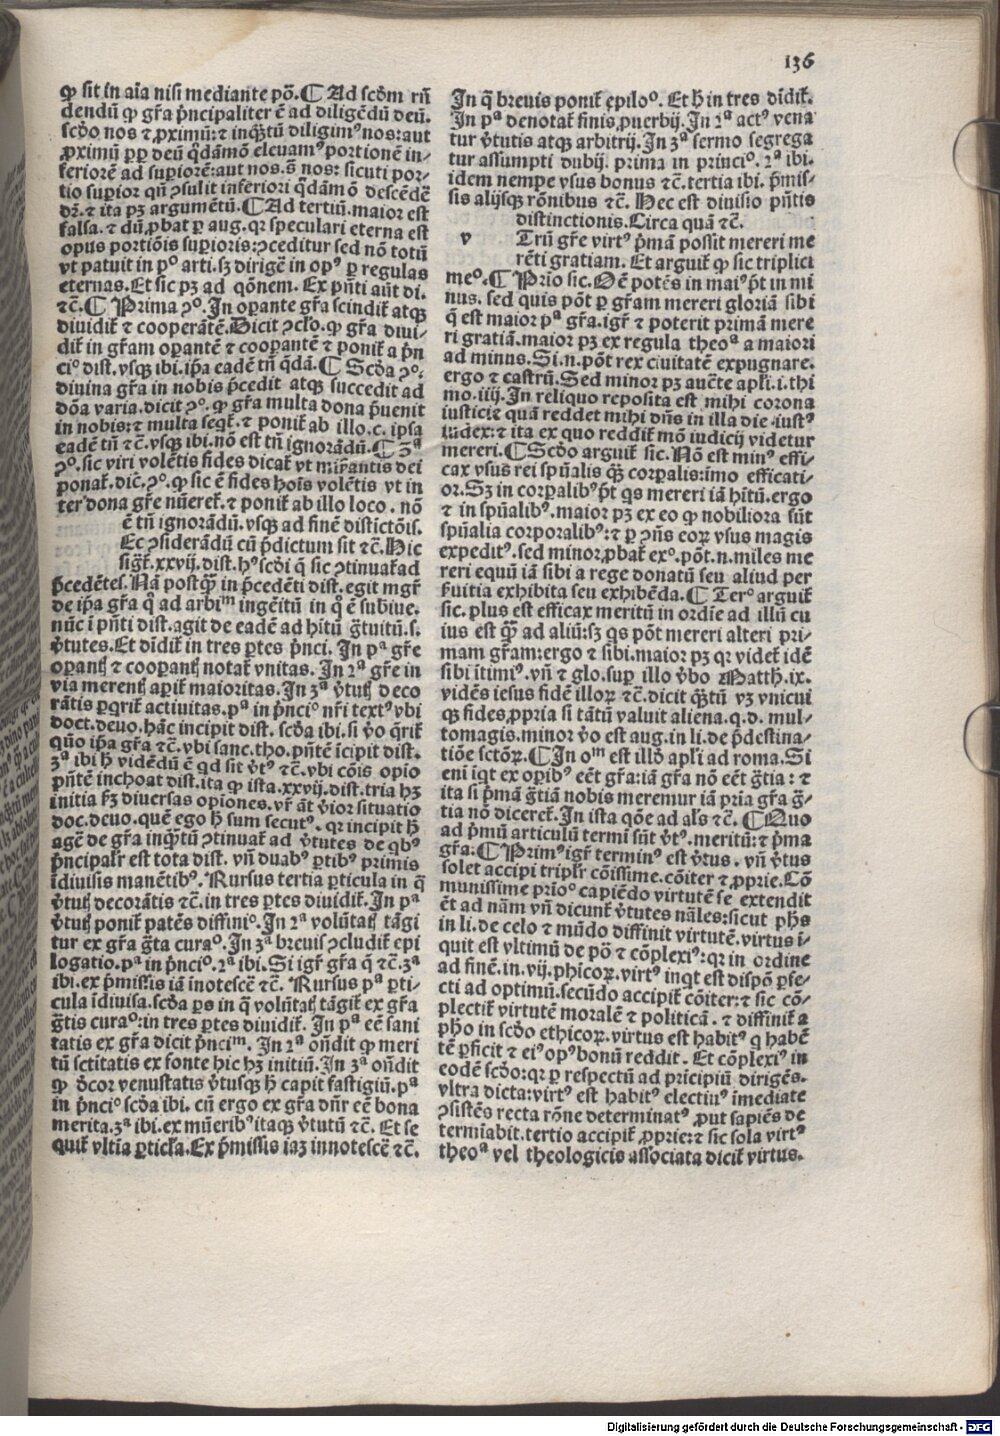 136
ꝙ sit in aīa nisi mediante po᷒. ¶ Ad scd̄m rn̄
dendū ꝙ gr̄a p̄ncipaliter ē ad diligēdū deū.
scd̄o nos ⁊ ꝓximū: ⁊ inq̄ꝫtū diligimꝰ nos: aut
ꝓximū ꝓꝑ deū q̄dāmō eleuamꝰ portionē in/
feriorē ad supiorē: aut nos. s̄ nos: sicuti por/
tio supior qn̄ ꝯsulit inferiori q̄dāmō descēdē
dꝛ̄. ⁊ ita pꝫ argumētū. ¶ Ad tertiū. maior est
falsa. ⁊ dū ꝓbat ꝑ aug. qꝛ speculari eterna est
opus portiōis supioris: ꝯceditur sed nō totū
vt patuit in pº arti. sꝫ dirigē in opꝰ ꝑ regulas
eternas. Et sic pꝫ ad qōnem. Ex pn̄ti aūt di.
⁊c̄. ¶ Prima ꝯº. In oꝑante gr̄a scindit̄ atqꝫ
diuidit̄ ⁊ cooperātē. Dicit ꝯclo. ꝙ gr̄a diui/
dit̄ in gr̄am oꝑantē ⁊ cooꝑantē ⁊ ponit̄ a pn̄
ciº dist. vsqꝫ ibi. ip̄a eadē tn̄ q̄dā. ¶ Scd̄a ꝯº.
diuina gr̄a in nobis p̄cedit atqꝫ succedit ad
dōa varia. dicit ꝯº. ꝙ gr̄a multa dona p̄uenit
in nobis: ⁊ multa seqt̄. ⁊ ponit̄ ab illo. c. ipsa
eadē tn̄ ⁊c̄. vsqꝫ ibi. nō est tn̄ ignorādū. ¶ 3ª
ꝯº. sic viri volētis fides dicat̄ vt mir̄antis dei
ponat̄. dic̄. ꝯº. ꝙ sic ē fides hoīs volētis vt in
ter dona gr̄e nūeret̄. ⁊ ponit̄ ab illo loco . nō
ē tn̄ ignorādū. vsqꝫ ad finē distīctōis.
Ec ꝯsiderādū cū p̄dictum sit ⁊c̄. Hic
sigt̄. xxvij. dist. hꝰ scd̄i q̄ sic ꝯtinuat̄ ad
p̄cedētes. Nā postqꝫ̄ in p̄cedēti dist. egit mgr̄
de ip̄a gr̄a q̄ ad arbiᵐ ingēitū in q̄ ē subiue.
nūc i pn̄ti dist. agit de eadē ad hītū g̅tuitū. s.
v̄tutes. Et dīdit̄ in tres ꝑtes p̄nci. In pª gr̄e
oꝑantꝭ ⁊ cooꝑantꝭ notat̄ vnitas. In 2ª gr̄e in
via merentꝭ aꝑit̄ maioritas. In 3ª v̄tutꝭ deco
rātis ꝑqrit̄ actiuitas. pª in p̄nciº nr̄i textꝰ vbi
doct. deuo. hāc incipit dist. scd̄a ibi. si v̄o q̄rit̄
quō ip̄a gr̄a ⁊c̄. vbi sanc. tho. pn̄tē īcipit dist.
3ª ibi h̄ vidēdū ē qd sit v̄tꝰ ⁊c̄. vbi cōis opio
pn̄tē inchoat dist. ita ꝙ ista. xxvij. dist. tria hꝫ
initia ẜꝫ diuersas opiones. vr̄ āt v̄ior situatio
doc. deuo. quē ego h̄ sum secutꝰ. qꝛ incipit h̄
agē de gr̄a inq̄ꝫtū ꝯtinuat̄ ad v̄tutes de qbꝰ
p̄ncipalr̄ est tota dist. vn̄ duabꝰ ꝑtibꝰ primis
īdiuisis manētibꝰ. Rursus tertia ꝑticula in q̄
v̄tutꝭ decorātis ⁊c̄. in tres ꝑtes diuidit̄. In pª
v̄tutꝭ ponit̄ patēs diffiniº. In 2ª volūtatꝭ tāgi
tur ex gr̄a g̅ta curaº. In 3ª breuis ꝯcludit̄ epi
logatio. pª in p̄nciº. 2ª ibi. Si igr̄ gr̄a q̄ ⁊c̄. 3ª
ibi. ex p̄missis iā inotescē ⁊c̄. Rursus pª ꝑti/
cula īdiuisa. scd̄a ꝑs in q̄ volūtatꝭ tāgit̄ ex gr̄a
g̅tis curaº: in tres ꝑtes diuidit̄. In pª eē sani
tatis ex gr̄a dicit p̄nciᵐ. In 2ª ondit ꝙ meri
tū sctitatis ex fonte hic hꝫ initiū. In 3ª ondit
ꝙ v̄cor venustatis v̄tusqꝫ h̄ capit fastigiū. pª
in p̄nciº scd̄a ibi. cū ergo ex gr̄a dn̄r eē bona
merita. 3ª ibi. ex mūeribꝰ itaqꝫ v̄tutū ⁊c̄. Et se
quit̄ vltīa ꝑticl̄a. Ex p̄missis iaꝫ innotescē ⁊c̄.
In q̄ breuis ponit̄ epiloº. Et h̄ in tres dīdit̄.
In pª denotat̄ finis ꝓuerbij. In 2ª actꝰ vena
tur v̄tutis atqꝫ arbitrij. In 3ª sermo segrega
tur assumpti dubij. prima in princiº. 2ª ibi.
idem nempe vsus bonus ⁊c̄. tertia ibi. p̄mis/
sis alijsqꝫ rōnibus ⁊c̄. Hec est diuisio pn̄tis
distinctionis. Circa quā ⁊c̄.
v Trū gr̄e virtꝰ p̄mā possit mereri me
rēti gratiam. Et arguit̄ ꝙ sic triplici
meº. ¶ Prīo sic. Oē potēs in maiꝰ p̄t in mī
nus. sed quis pōt ꝑ gr̄am mereri gloriā sibi
q̄ est maior pª gr̄a. igr̄ ⁊ poterit primā mere
ri gratiā. maior pꝫ ex regula theoª a maiori
ad minus. Si. n. pōt rex ciuitatē expugnare.
ergo ⁊ castrū. Sed minor pꝫ aucte apl̄i. i. thi
mo. iiij. In reliquo reposita est mihi corona
iusticie quā reddet mihi dn̄s in illa die. iustꝰ
iudex: ⁊ ita ex quo reddit̄ mō iudicij videtur
mereri. ¶ Scd̄o arguit̄ sic. Nō est minꝰ effi/
cax vsus rei spūalis qꝫ̄ corꝑalis: īmo efficati/
or. Sꝫ in corꝑalibꝰ p̄t qs mereri iā hītū. ergo
⁊ in spūalibꝰ. maior pꝫ ex eo ꝙ nobiliora sūt
spūalia corporalibꝰ: ⁊ ꝑ ꝯn̄s eoꝝ vsus magis
expeditꝰ. sed minor ꝓbat̄ exº. pōt. n. miles me
reri equū iā sibi a rege donatū seu aliud per
ẜuitia exhibita seu exhibēda. ¶ Terº arguit̄
sic. plus est efficax meritū in ordīe ad illū cu
ius est qꝫ̄ ad aliū: sꝫ qs pōt mereri alteri pri/
mam gr̄am: ergo ⁊ sibi. maior pꝫ qꝛ videt̄ idē
sibi ītimiꝰ. vn̄ ⁊ glo. suꝑ illo v̄bo Matth. ix.
vidēs iesus fidē illoꝝ ⁊c̄. dicit qꝫ̄tū vꝫ vnicui
qꝫ fides ꝓpria si tātū valuit aliena. q. d. mul/
tomagis. minor v̄o est aug. in li. de p̄destina/
tiōe sctōꝝ. ¶ In oᵐ est illd̄ apl̄i ad roma. Si
eni īqt ex oꝑibꝰ eēt gr̄a: iā gr̄a nō eēt g̅tia: ⁊
ita si p̄mā g̅tiā nobis meremur iā pria gr̄a g̅/
tia nō diceret̄. In ista qōe ad als ⁊c̄. ¶ Quo
ad p̄mū articulū termi sūt v̄tꝰ. meritū: ⁊ p̄ma
gr̄a. ¶ Primꝰ igr̄ terminꝰ est v̄tus. vn̄ v̄tus
solet accipi tripl̄r cōissime. cōiter ⁊ ꝓprie. Cō
munissime prioº capiēdo virtutē se extendit
ēt ad nām vn̄ dicunt̄ v̄tutes nāles: sicut ph̄s
in li. de celo ⁊ mūdo diffinit virtutē. virtus i/
quit est vltimū de pō ⁊ cōplexiꝰ: qꝛ in ordine
ad finē. in. vij. phicoꝝ. virtꝰ inqt est dispō ꝑfe/
cti ad optimū. secūdo accipit̄ cōiter: ⁊ sic cō/
plectit̄ virtutē moralē ⁊ politicā. ⁊ diffinit̄ a
ph̄o in scd̄o ethicoꝝ. virtus est habitꝰ q habē
tē ꝑficit ⁊ eiꝰ opꝰ bonū reddit. Et cōplexiꝰ in
eodē scd̄o: qꝛ ꝑ respectū ad pricipiū dirigēs.
vltra dicta: virtꝰ est habitꝰ electiuꝰ īmediate
ꝯsistēs recta rōne determinatꝰ ꝓut sapiēs de
termīabit. tertio accipit̄ ꝓprie: ⁊ sic sola virtꝰ
theoª vel theologicis associata dicit̄ virtus.
Digitalisierung gefördert durch die Deutsche Forschungsgemeinschaft - DFG